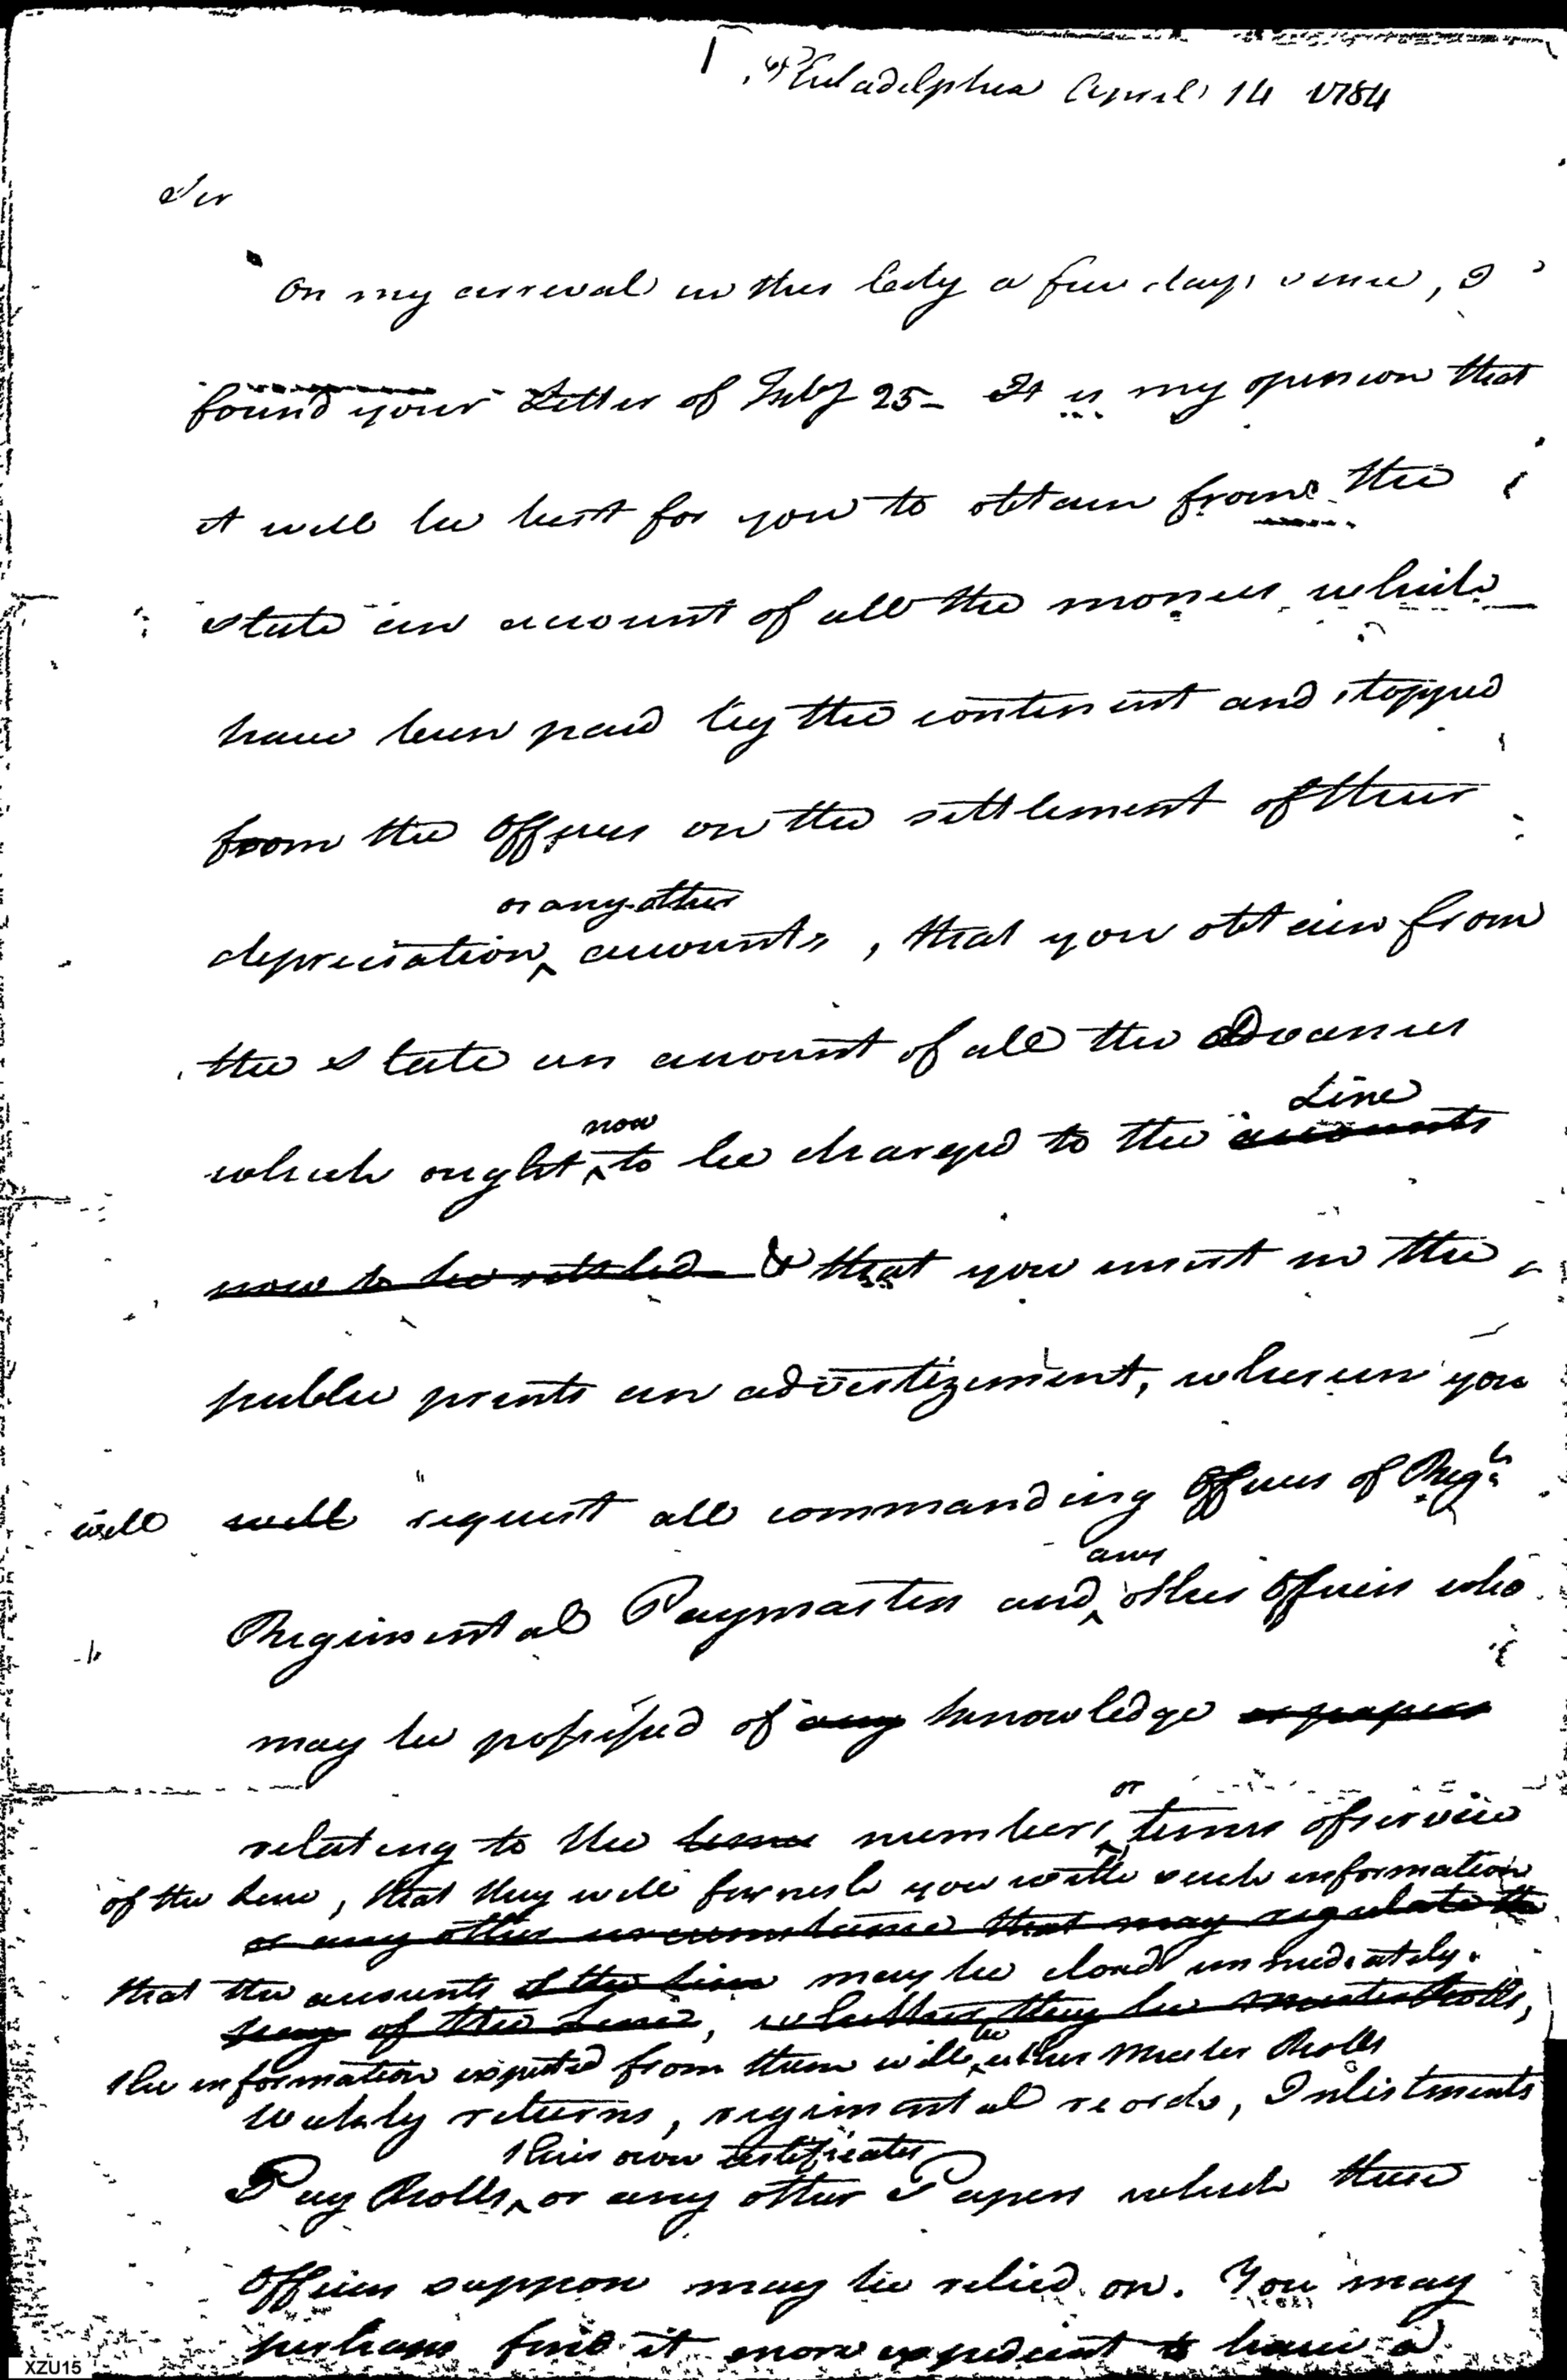 Philadelphia April 14 1784
Sir
On my arrival in this City a few days since, I
found your Letter of Feby 25 - It is my opinion that
it will be best for you to obtain from the
State an account of all the monies which
have been paid by the continent and stopped
from the Officers on the settlement of their
or any other
depreciation accounts, that you obtain from
the State an account of all the advances
now Line
which ought to be charged to the accounts
now to be settled & that you insert in the
public prints an advertizement, wherein you
will will request all commanding Officers of Regts
any
Regimental Paymasters and other Officers who
may be possessed of any knowledge or papers
or
relating to the numbers, terms of service
of the Line, that they will furnish you with such information
or any other circumstance that may regulate the
that the accounts of the Line may be closed immediately.
pay of the Line, whether they be muster Rolls,
be
the information expected from them will either Muster Rolls
Weekly returns, regimental records, Inlistments
their own certificates
Pay Rolls, or any other Papers which these
Officers suppose may be relied on. You may
perhaps find it more expedient to have a
XZU15